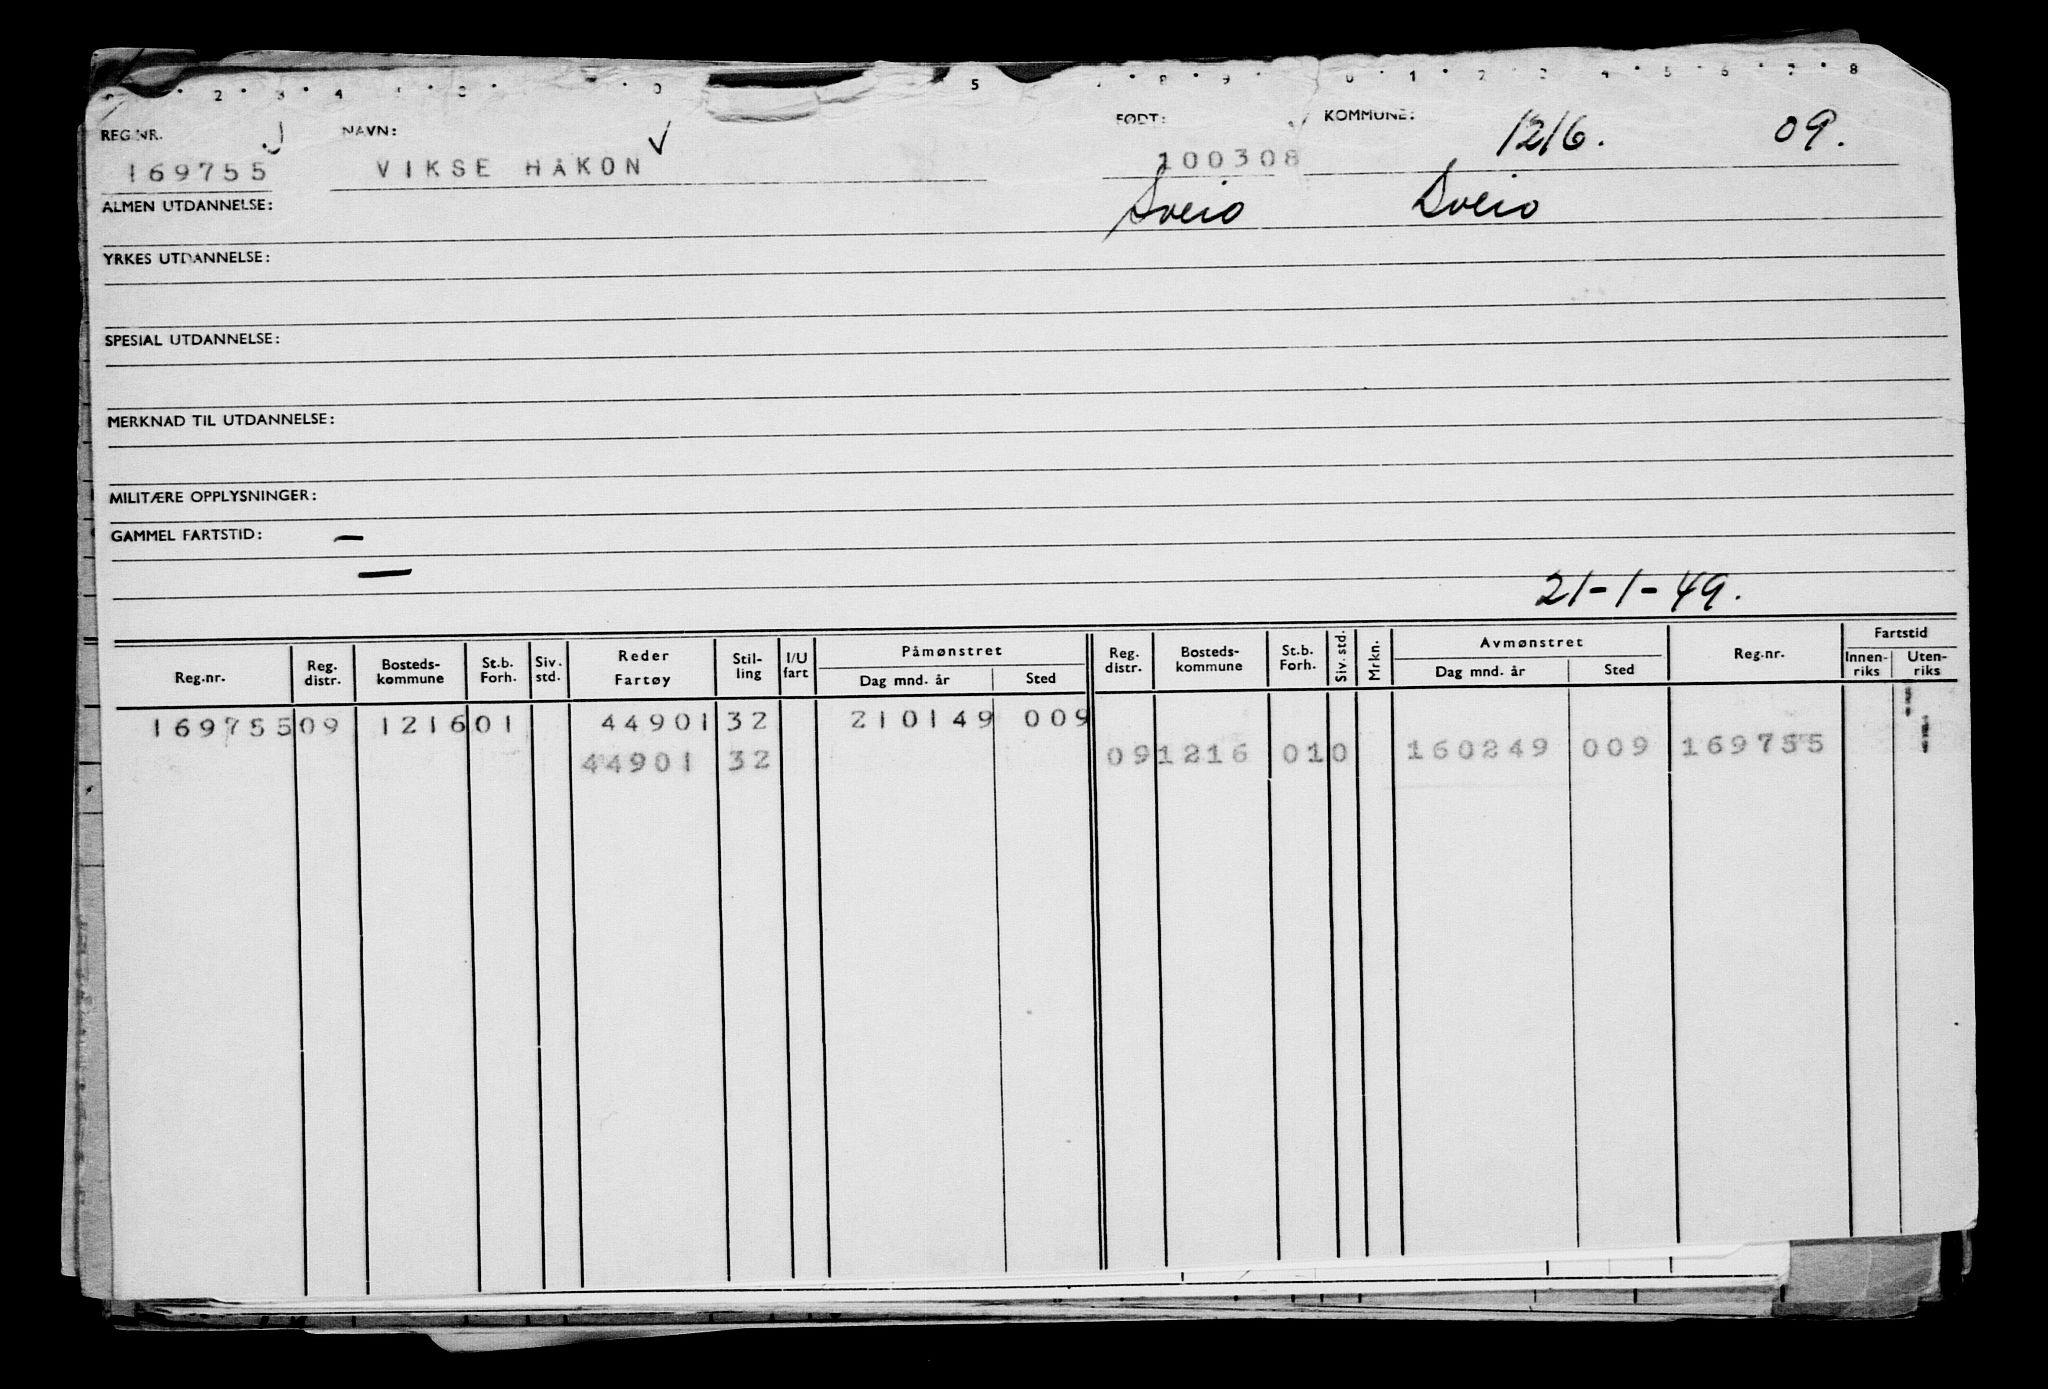 2 3 4 5 8 9 0 1 2 4 5 6 7 8
REG.NR. NAVN: FØDT: KOMMUNE: 1216. 09.
169755 VIKSE HÅKON 100308
ALMEN UTDANNELSE: Sveio Sveio
YRKES UTDANNELSE:
SPESIAL UTDANNELSE:
MERKNAD TIL UTDANNELSE:
MILITÆRE OPPLYSNINGER:
GAMMEL FARTSTID: —
— 21-1-49.
Reg.nr. Reg. distr. Bosteds-kommune St.b. Forh. Siv. std. Reder Fartøy Stil-ling I/U fart Påmønstret Dag mnd. år Sted Reg. distr. Bosteds-kommune St.b. Forh. Siv. std. Mrkn. Avmønstret Dag mnd. år Sted Reg.nr. Fartstid Innen-riks Uten-riks
169755 09 1216 01 44901 32 210149 009
44901 32 09 1216 01 0 160249 009 169755